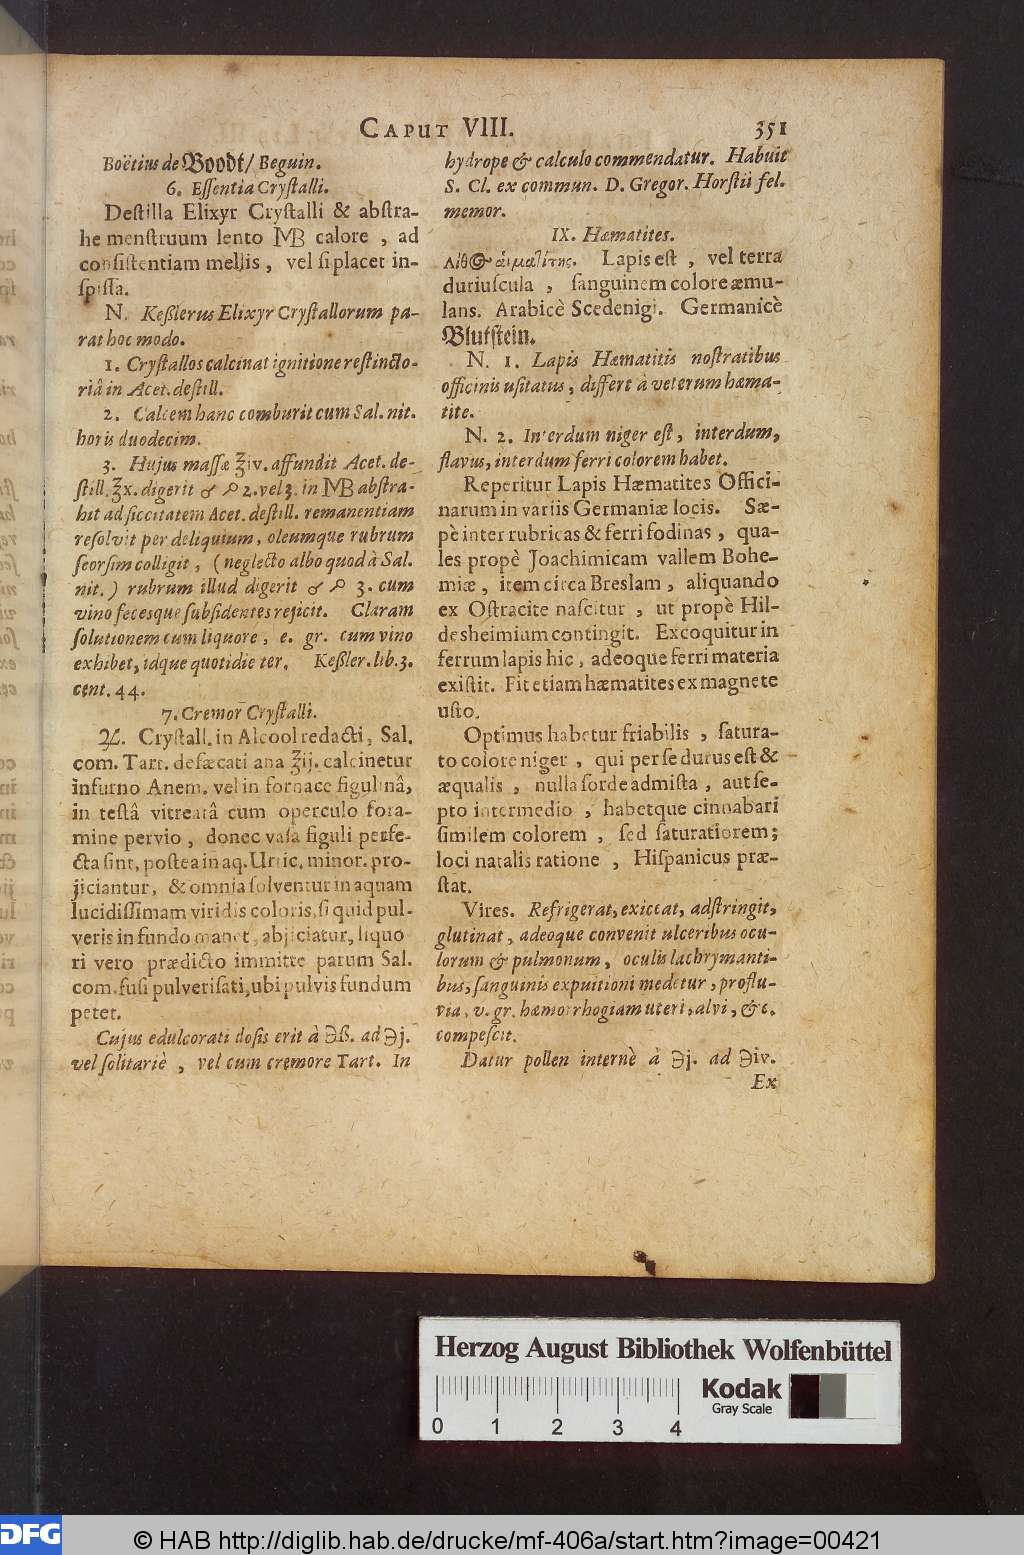 CAPUT VIII. 351
Boëtius de Boodt/ Beguin.
6. Eſſentia Cryſtalli.
Deſtilla Elixyr Cryſtalli & abſtra-
he menſtruum lento MB calore , ad
conſiſtentiam mellis , vel ſi placet in-
ſpiſſa.
N. Keßlerus Elixyr Cryſtallorum pa-
rat hoc modo.
1. Cryſtallos calcinat ignitione reſtincto-
riâ in Acet. deſtill.
2. Calcem hanc comburit cum Sal. nit.
horis duodecim.
3. Hujus maſſæ ℥iv. affundit Acet. de-
ſtill. ℥x. digerit ♂ ☌ 2. vel 3. in MB abſtra-
hit ad ſiccitatem Acet. deſtill. remanentiam
reſolvit per deliquium, oleumque rubrum
ſeorſim colligit , (neglecto albo quod à Sal.
nit.) rubrum illud digerit ♂ ☌ 3. cum
vino feceſque ſubſidentes rejicit. Claram
ſolutionem cum liquore , e. gr. cum vino
exhibet, idque quotidie ter. Keßler. lib. 3.
cent. 44.
7. Cremor Cryſtalli.
℞. Cryſtall. in Alcool redacti, Sal.
com. Tart. defæcati ana ℥ij. calcinetur
in furno Anem. vel in fornace figulinâ,
in teſtâ vitreatâ cum operculo fora-
mine pervio , donec vaſa figuli perfe-
cta ſint, poſtea in aq. Urtic. minor. pro-
jiciantur, & omnia ſolventur in aquam
lucidiſſimam viridis coloris, ſi quid pul-
veris in fundo manet, abjiciatur, liquo
ri vero prædicto immitte parum Sal.
com. fuſi pulveriſati, ubi pulvis fundum
petet.
Cujus edulcorati doſis erit à ℈ß. ad ℈j.
vel ſolitariè , vel cum cremore Tart. In
hydrope & calculo commendatur. Habuit
S. Cl. ex commun. D. Gregor. Horſtii fel.
memor.
IX. Hæmatites.
Λίθος αἱματίτης. Lapis eſt , vel terra
duriuſcula , ſanguinem colore æmu-
lans. Arabicè Scedenigi. Germanicè
Blutſtein.
N. 1. Lapis Hæmatitis noſtratibus
officinis uſitatus, differt à veterum hæma-
tite.
N. 2. Interdum niger eſt, interdum,
flavus, interdum ferri colorem habet.
Reperitur Lapis Hæmatites Offici-
narum in variis Germaniæ locis. Sæ-
pè inter rubricas & ferri fodinas , qua-
les propè Joachimicam vallem Bohe-
miæ , item circa Breslam , aliquando
ex Oſtracite naſcitur , ut propè Hil-
desheimium contingit. Excoquitur in
ferrum lapis hic , adeoque ferri materia
exiſtit. Fit etiam hæmatites ex magnete
uſto.
Optimus habetur friabilis , ſatura-
to colore niger , qui per ſe durus eſt &
æqualis , nulla ſorde admiſta , aut ſe-
pto intermedio , habetque cinnabari
ſimilem colorem , ſed ſaturatiorem;
loci natalis ratione , Hiſpanicus præ-
ſtat.
Vires. Refrigerat, exiccat, adſtringit,
glutinat, adeoque convenit ulceribus ocu-
lorum & pulmonum, oculis lachrymanti-
bus, ſanguinis expuitioni medetur, proflu-
via, v. gr. hæmorrhogiam uteri, alvi, &c.
compeſcit.
Datur pollen internè à ℈j. ad ℈iv.
Ex
Herzog August Bibliothek Wolfenbüttel
Kodak
Gray Scale
0 1 2 3 4
DFG
© HAB http://diglib.hab.de/drucke/mf-406a/start.htm?image=00421